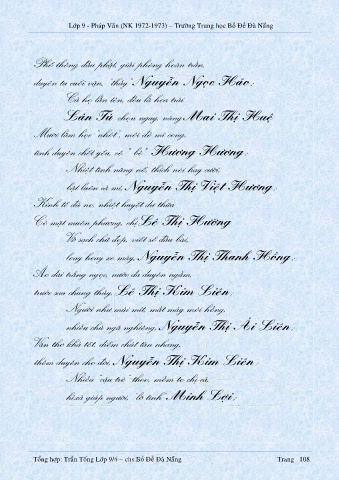 Lớp 9 - Pháp Văn (NK 1972-1973) – Trường Trung học Bồ Đề Đà Nẵng
Phổ thông đầu phật, giải phóng hoàn trần,
duyên tu cuối vận, "thầy" Nguyễn Ngọc Hảo;
Cả họ lẫn tên, đều là hoa trái
Lân Tà chọn ngay nàng Mai Thị Huệ
Mười lăm học "nhất", mới đó mi cong,
tình duyên chớt yểu, rể " bố" Hương Hương;
Nhiệt tình năng nổ, thích nói hay cười,
bặt luôn cả mi, Nguyễn Thị Việt Hương;
Kinh tế dù eo, nhiệt huyết dư thừa
Có một muôn phương, chị Lê Thị Hường
Vở sạch chữ đẹp, viết sổ đầu bài,
long bong xe máy, Nguyễn Thị Thanh Hồng;
Áo dài trắng ngọc, nước da duyên ngầm,
trước sau chung thủy, Lê Thị Kim Liên;
Người nhỏ mũi mít, mắt mày môi hồng,
nhiều chú ngã nghiêng, Nguyễn Thị Ái Liên;
Văn thơ khá tốt, điểm chút tàn nhang,
thêm duyên cho đời, Nguyễn Thị Kim Liên;
Nhiều "cậu trò" theo, mồm to chị cả,
giúp người, "lò tình" Minh Lợi;
Tổng hợp: Trần Tống Lớp 9/4 – chs Bồ Đề Đà Nẵng Trang 108